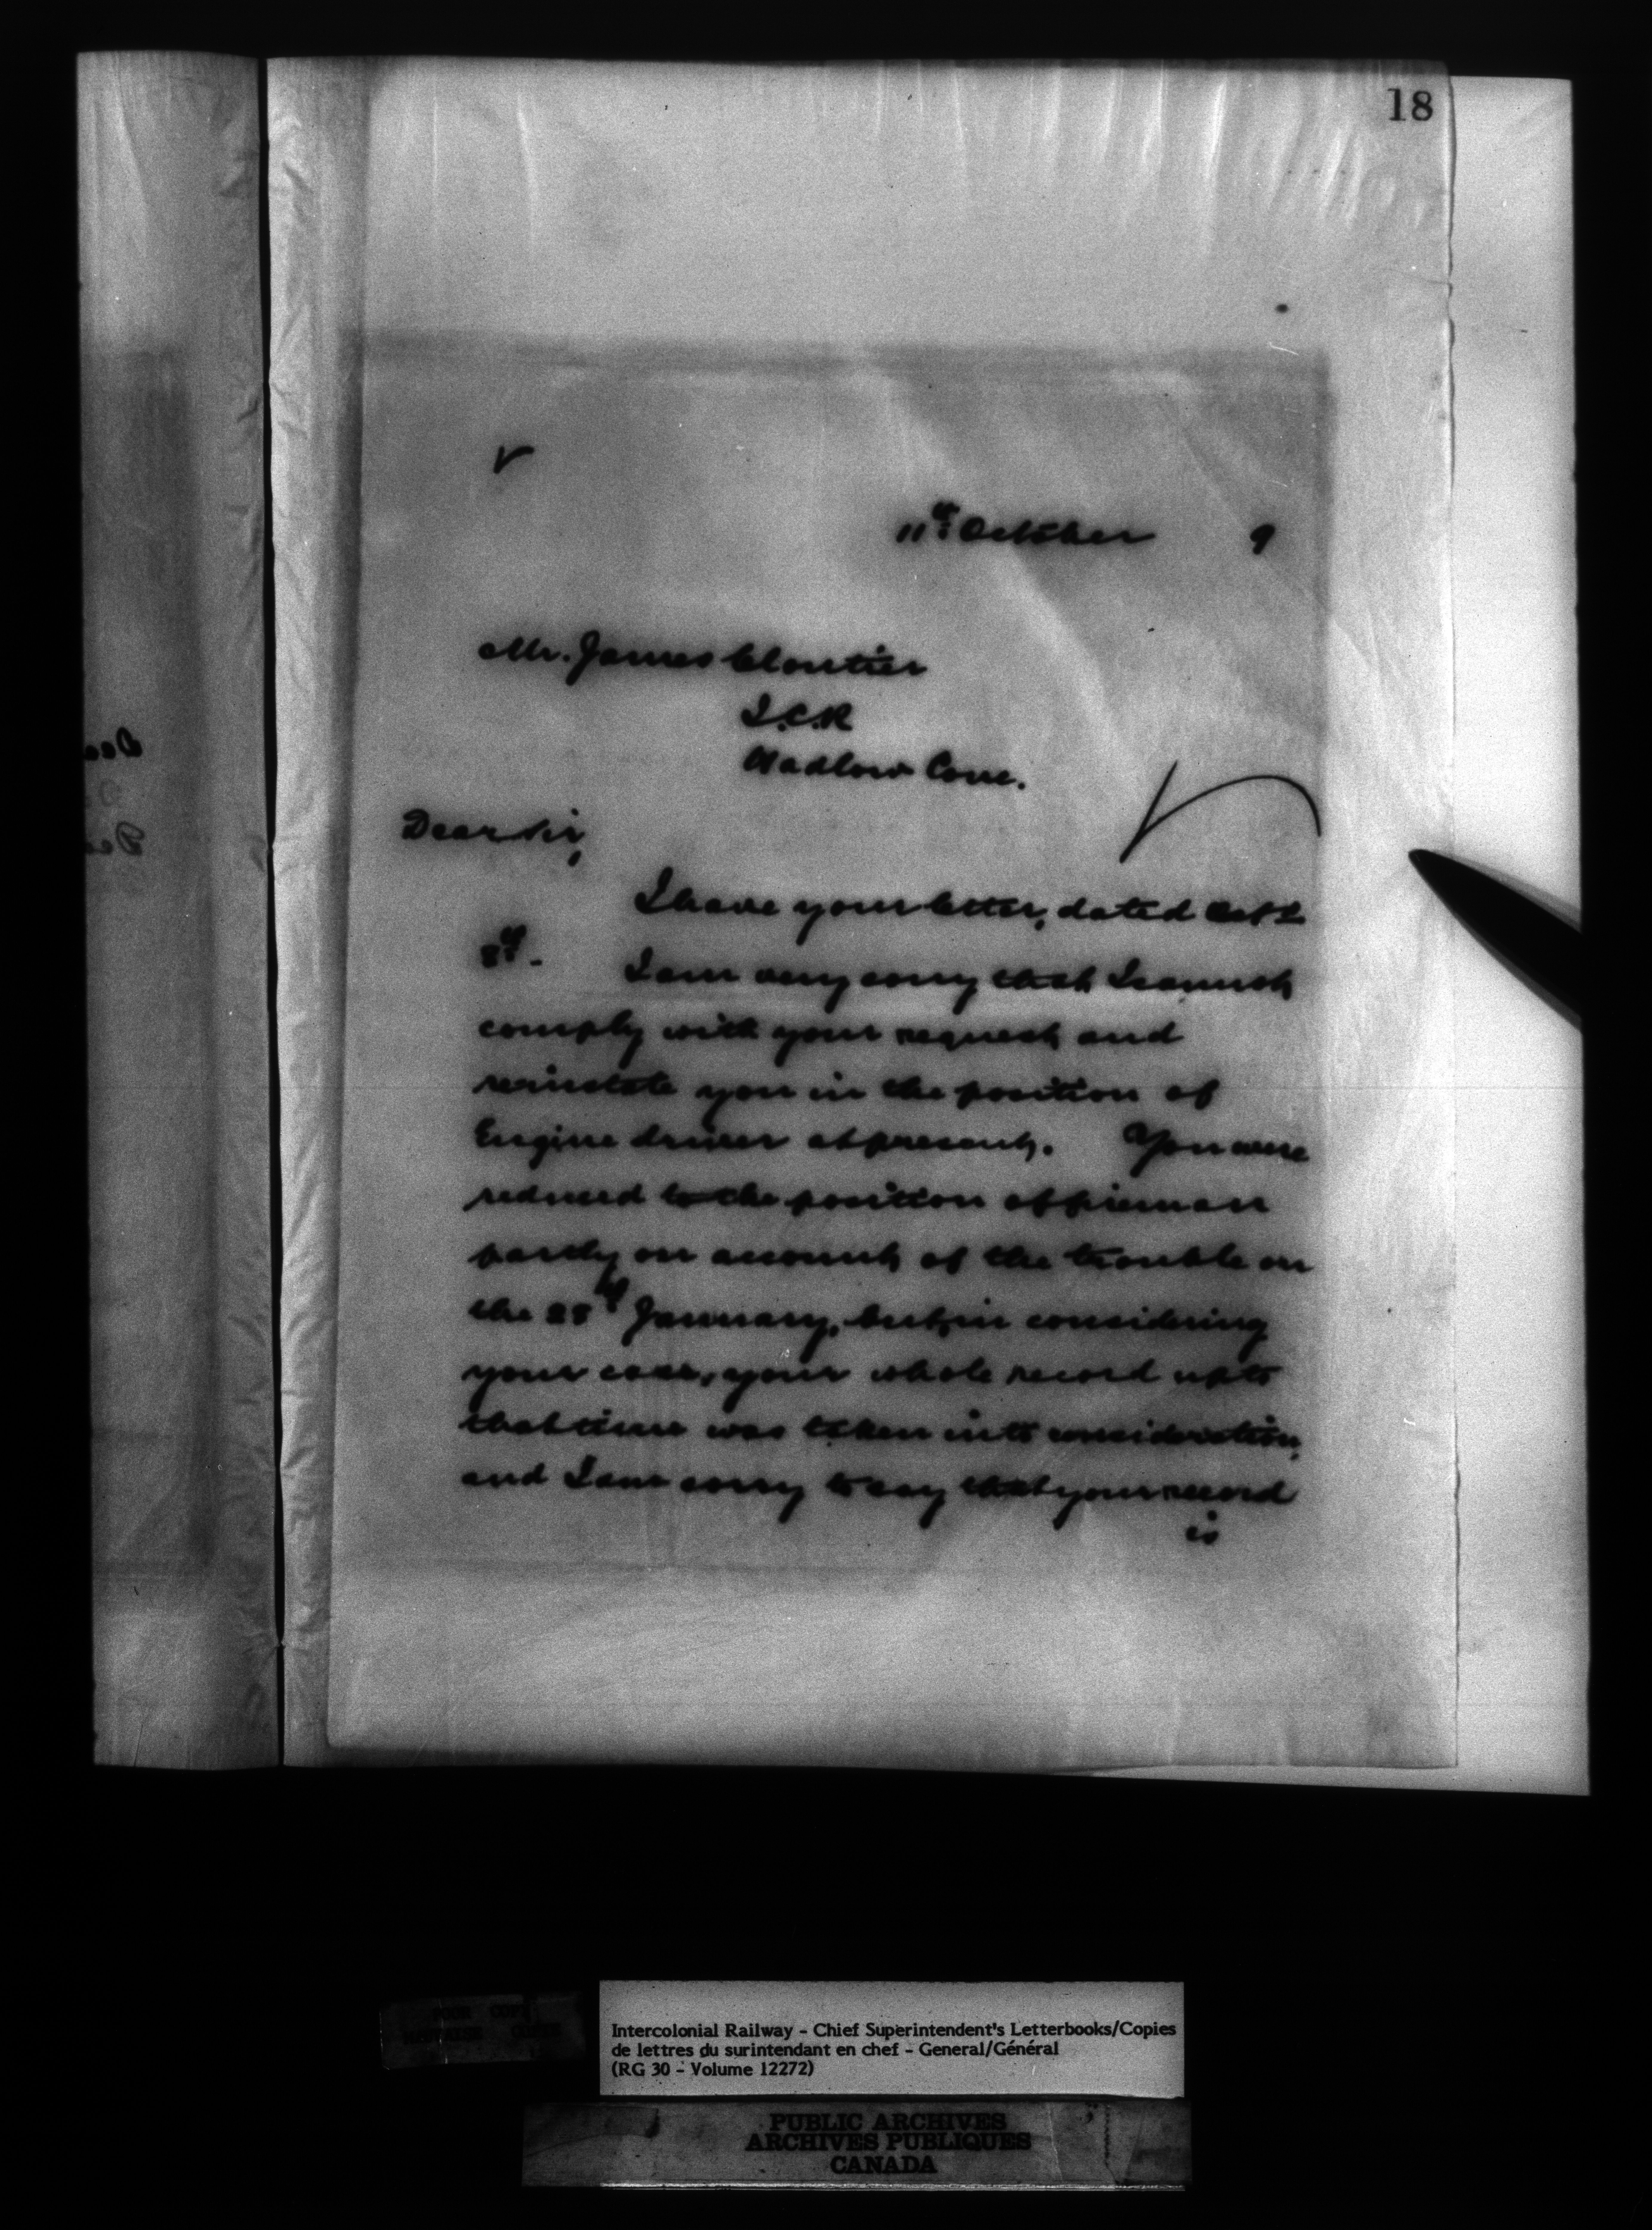 18
11th October 9
Mr. James Cloutier
I.C.R
Hadlow Cove.
Dear Sir,
I have your letter, dated Oct
8th - I am very sorry that I cannot
comply with your request and
reinstate you in the position of
Engine driver at present. You were
reduced to the position of fireman
partly on account of the trouble on
the 28th January, but, in considering
your case, your whole record up to
that time was taken into consideration,
and I am sorry to say that your record
is
Intercolonial Railway - Chief Superintendent's Letterbooks/Copies
de lettres du surintendant en chef - General/Général
(RG 30 - Volume 12272)
PUBLIC ARCHIVES
ARCHIVES PUBLIQUES
CANADA